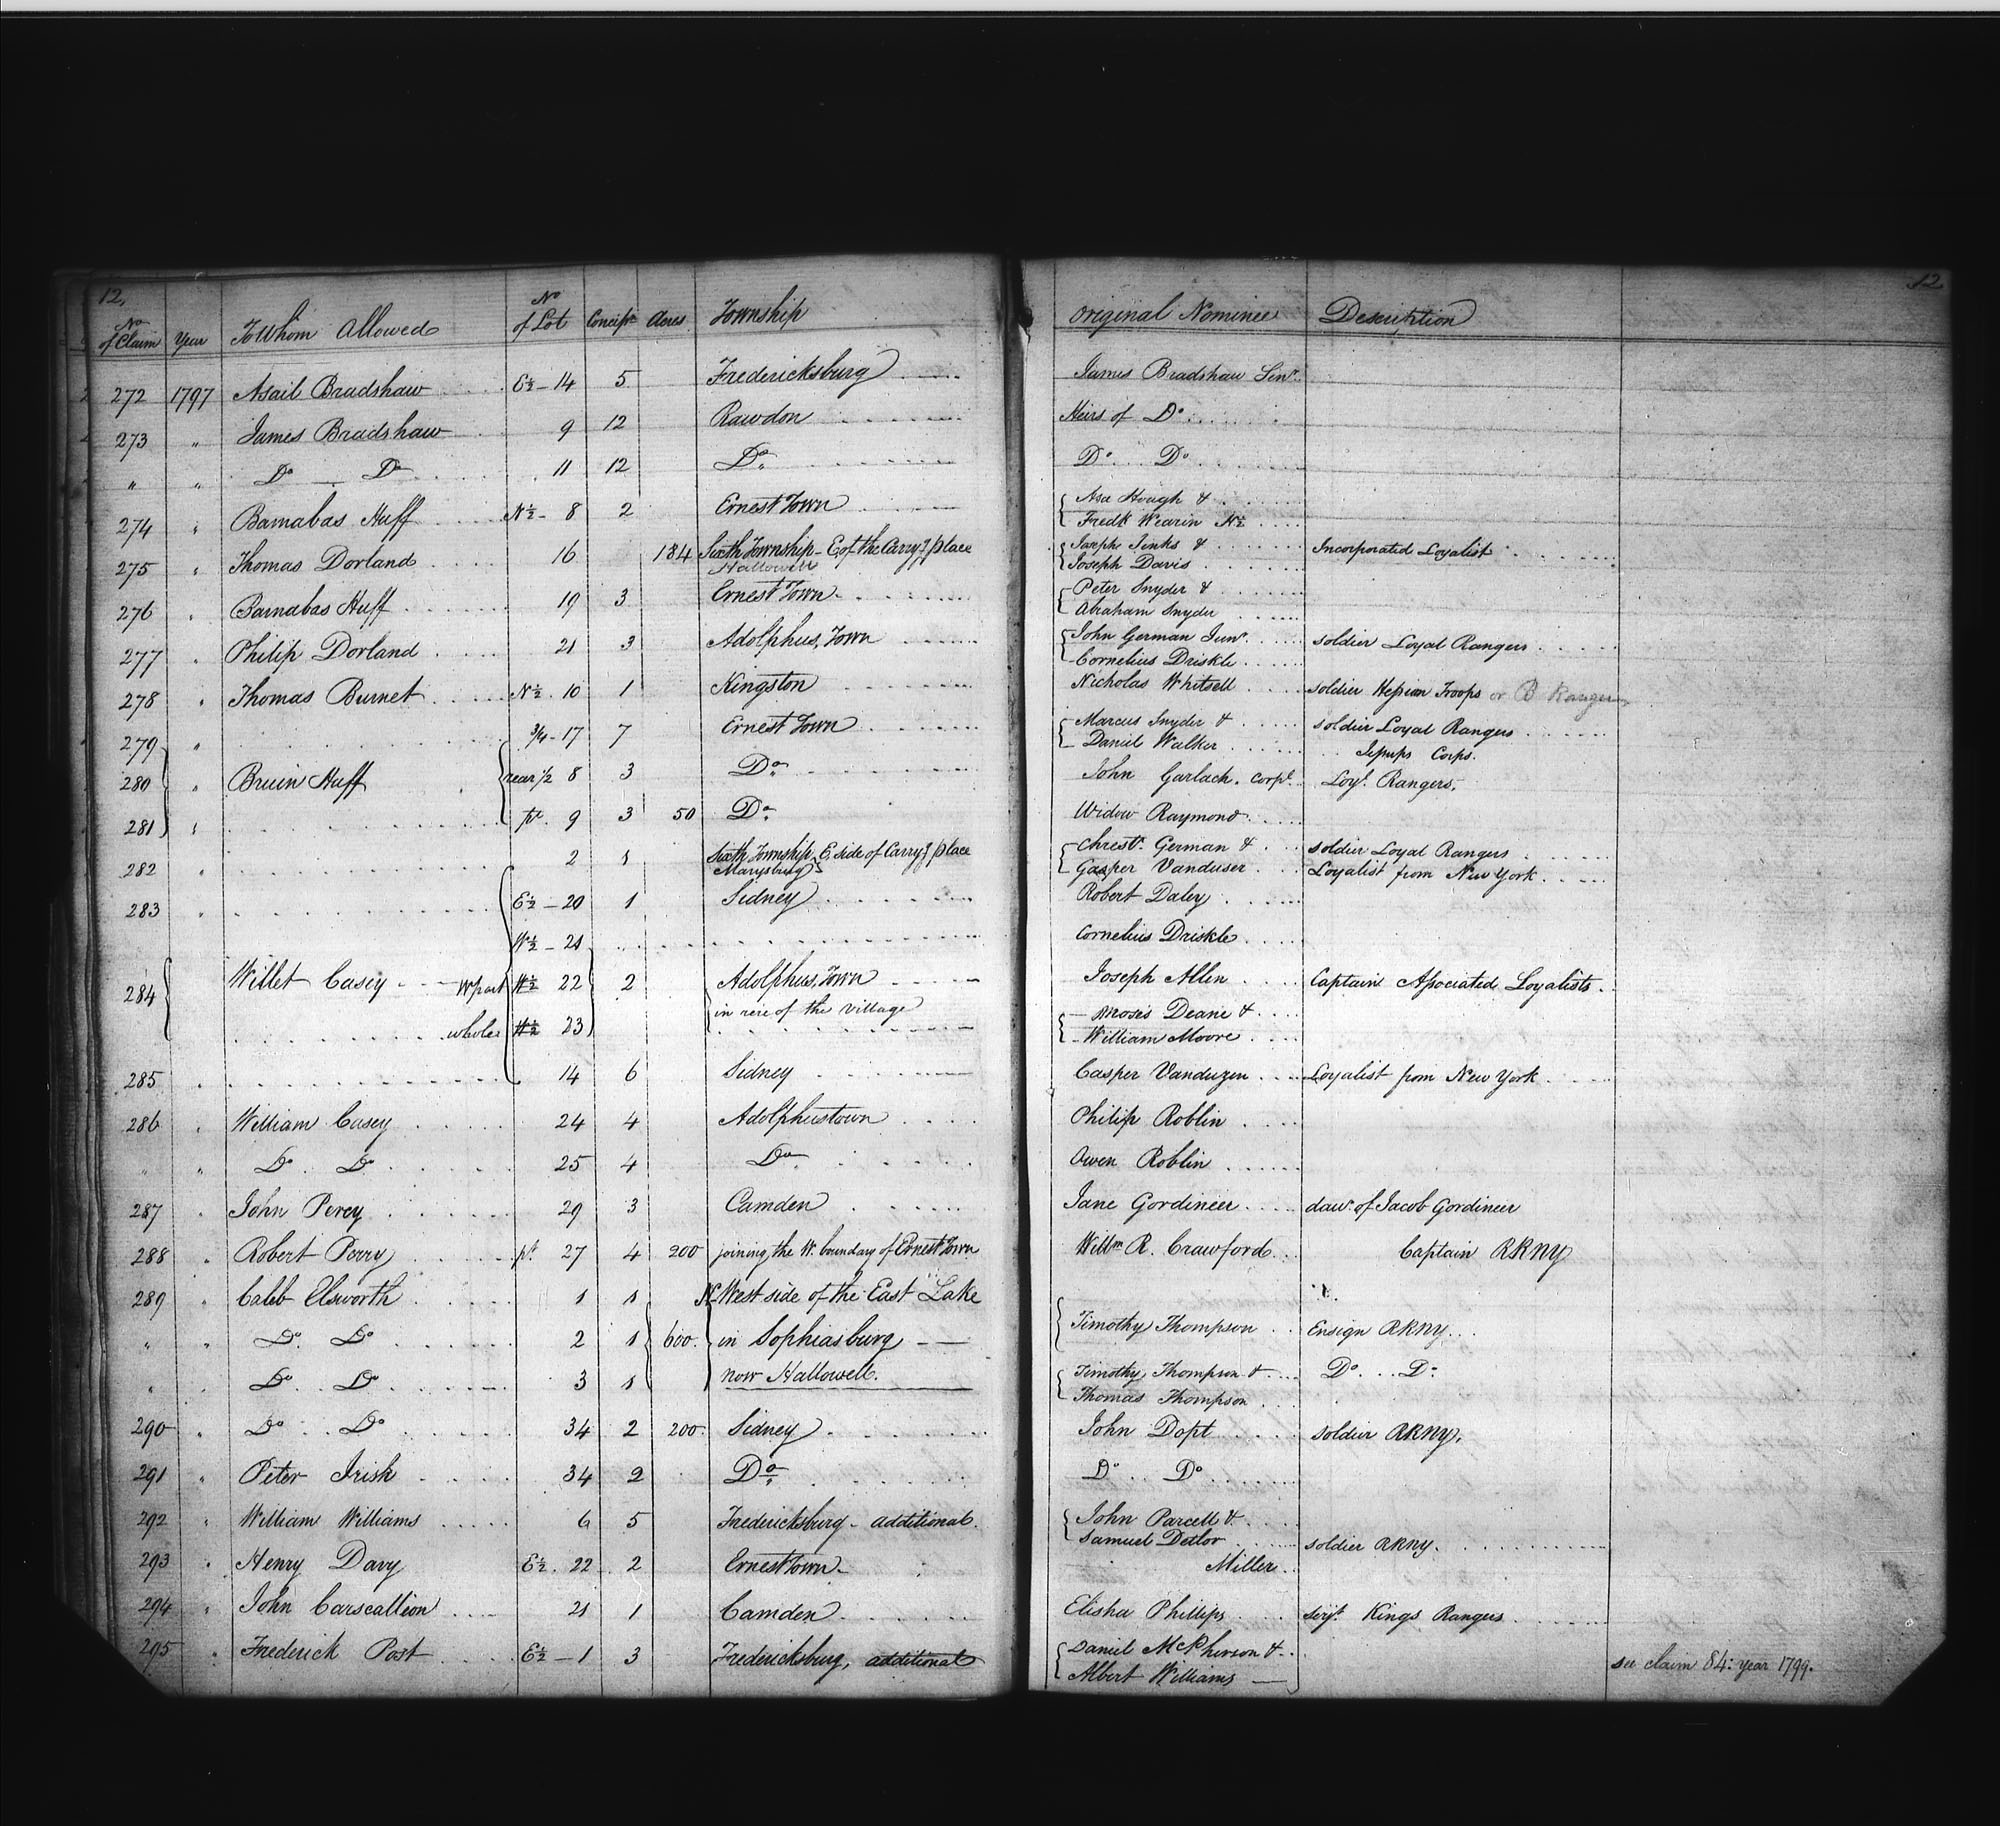 12,
12
No of Claim Year To Whom Allowed No of Lot Concessn Acres Township Original Nominee Description
272 1797 Asail Bradshaw E½ - 14 5 Fredericksburg James Bradshaw Senr.
273 " James Bradshaw 9 12 Rawdon Heirs of Do
" " Do Do 11 12 Do Do Do
274 " Barnabas Huff N½ - 8 2 Ernest Town Asa Hough &
Fredk Wearin N½
275 " Thomas Dorland 16 184 Sixth Township - E of the Carryg place Joseph Jinks & Incorporated Loyalist
Hallowell Joseph Davis
276 " Barnabas Huff 19 3 Ernest Town Peter Snyder &
Abraham Snyder
277 " Philip Dorland 21 3 Adolphus, Town John German Junr. soldier Loyal Rangers
Cornelius Driskle
278 " Thomas Burnet N½ 10 1 Kingston Nicholas Whitsell soldier Hessian Troops or B Rangers
279 " ¾ - 17 7 Ernest Town Marcus Snyder & soldier Loyal Rangers
Daniel Walker Jessups Corps.
280 " Bruin Huff rear ½ 8 3 Do John Garlach. Corpl. Loyl. Rangers.
281 " pt. 9 3 50 Do Widow Raymond
282 " 2 1 Sixth Township E. side of Carryg place Chrestr. German & soldier Loyal Rangers
Marysburg Gasper Vanduser Loyalist from New York
283 " E½ - 20 1 Sidney Robert Daley
W½ - 21 Cornelius Driskle
284 Willet Casey W part W½ 22 2 Adolphus, Town Joseph Allen Captain Associated Loyalists
in rere of the village Moses Deane &
whole W½ 23 William Moore
285 " 14 6 Sidney Casper Vanduzen Loyalist from New York
286 " William Casey 24 4 Adolphustown Philip Roblin
" " Do Do 25 4 Do Owen Roblin
287 " John Percy 29 3 Camden Jane Gordineer daur. of Jacob Gordineer
288 " Robert Perry pt 27 4 200 joining the W. boundary of Ernest Town Willm R. Crawford Captain RRNY
289 " Caleb Elsworth 1 1 N West side of the East Lake
" " Do Do 2 1 600. in Sophiasburg Timothy Thompson Ensign RRNY
" " Do Do 3 1 now Hallowell. Timothy Thompson & Do Do
Thomas Thompson
290 " Do Do 34 2 200. Sidney John Dopt soldier RRNY.
291 " Peter Irish 34 2 Do Do Do
292 " William Williams 6 5 Fredericksburg - additional. John Parcell &
Samuel Detlor soldier RRNY.
293 " Henry Davy E½. 22 2 Ernesttown - Miller
294 " John Carscallion 21 1 Camden Elisha Phillips serjt. Kings Rangers
295 " Frederick Post E½ - 1 3 Fredericksburg, additional Daniel McPherson &
Albert Williams see claim 84: year 1799.